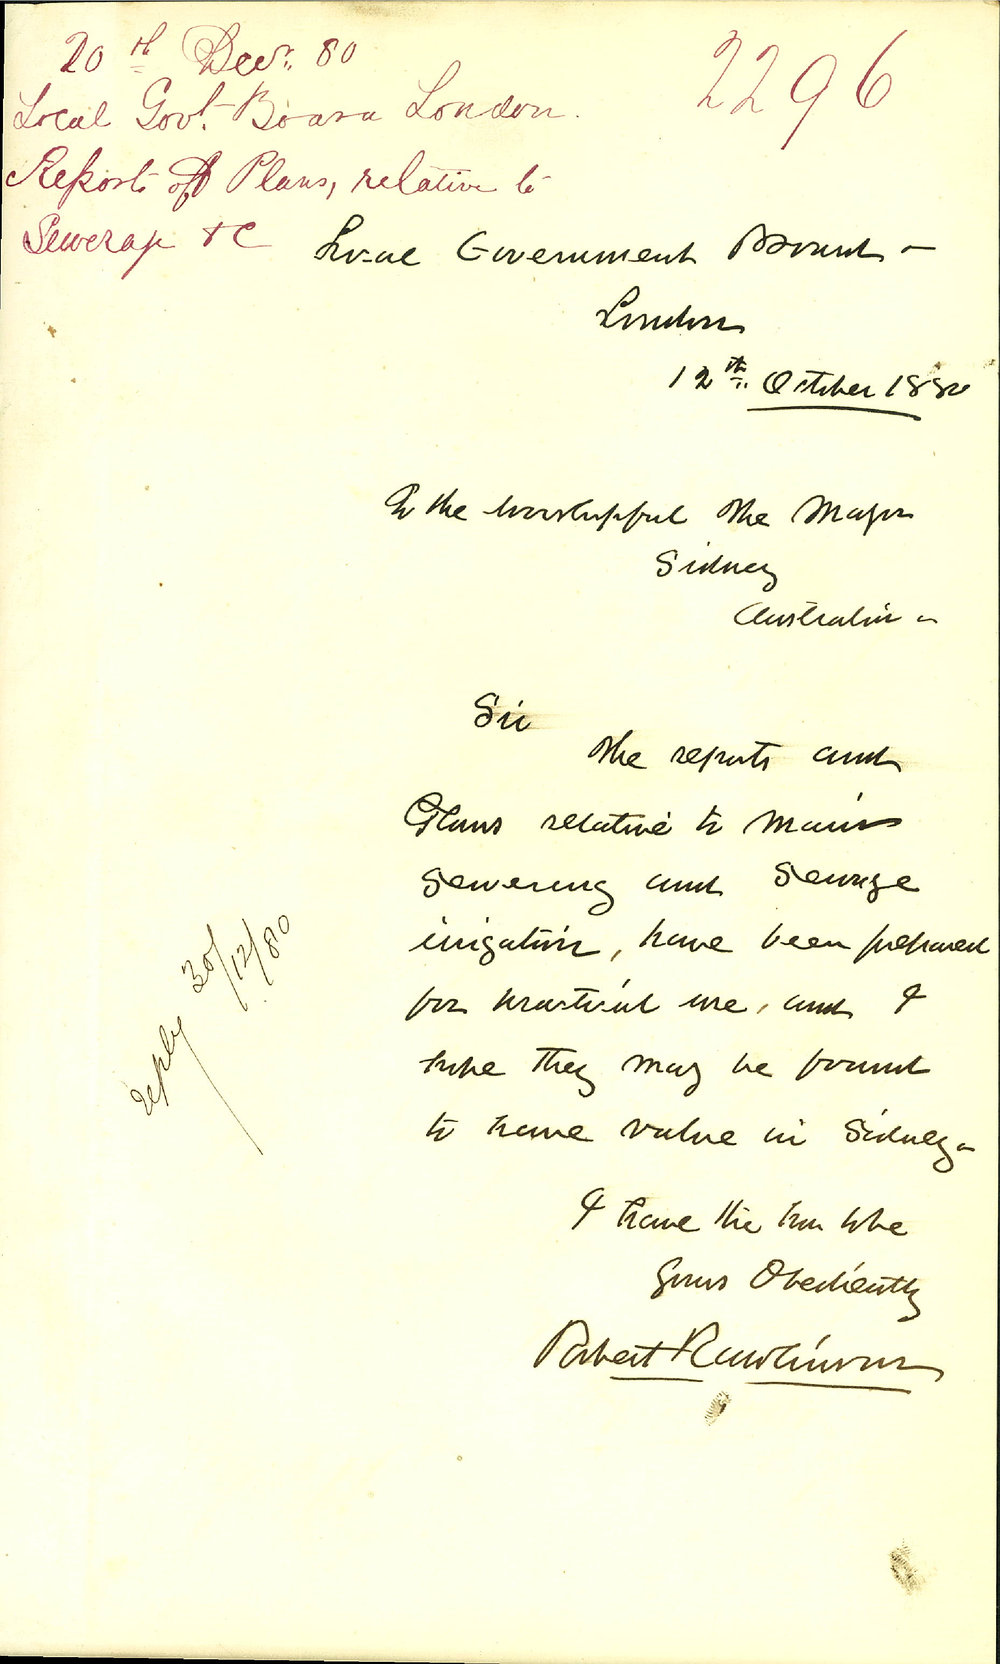 20th Decr. 80
2296
Local Govt. Board London.
Reports of Plans, relative to
Sewerage &C
Local Government Board –
London
12th October 1880
To the worshipful The Mayor
Sidney
Australia –
Sir
The reports and
Plans relative to Main
Sewering and Sewage
irrigation, have been prepared
for practical use, and I
hope they may be found
to have value in Sidney –
I have the hon to be
Yours Obediently
Robert Rawlinson
reply 30/12/80